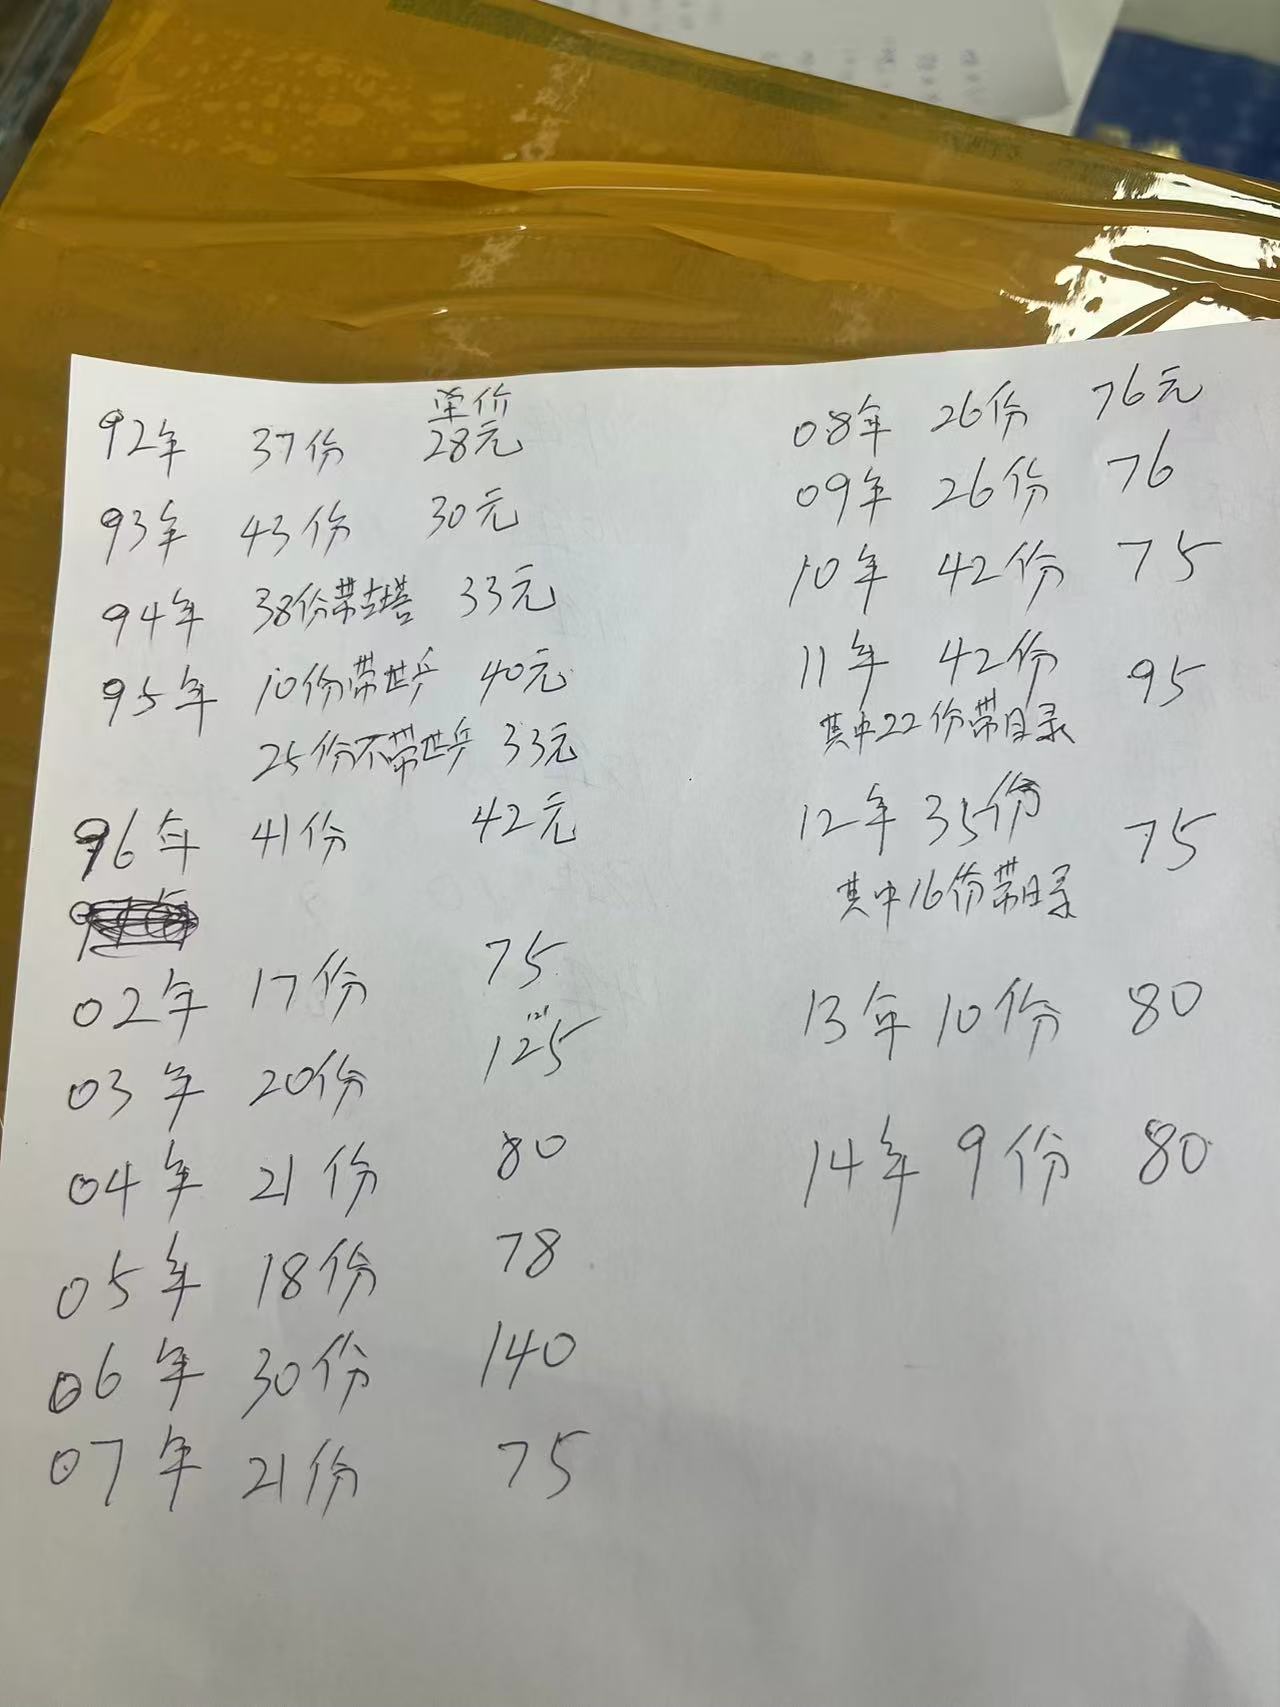 单价
92年 37份 28元
93年 43份 30元
94年 38份带古塔 33元
95年 10份带世乒 40元
25份不带世乒 33元
96年 41份 42元
02年 17份 75
03年 20份 125
04年 21份 80
05年 18份 78
06年 30份 140
07年 21份 75
08年 26份 76元
09年 26份 76
10年 42份 75
11年 42份 95
其中22份带目录
12年 35份 75
其中16份带目录
13年 10份 80
14年 9份 80